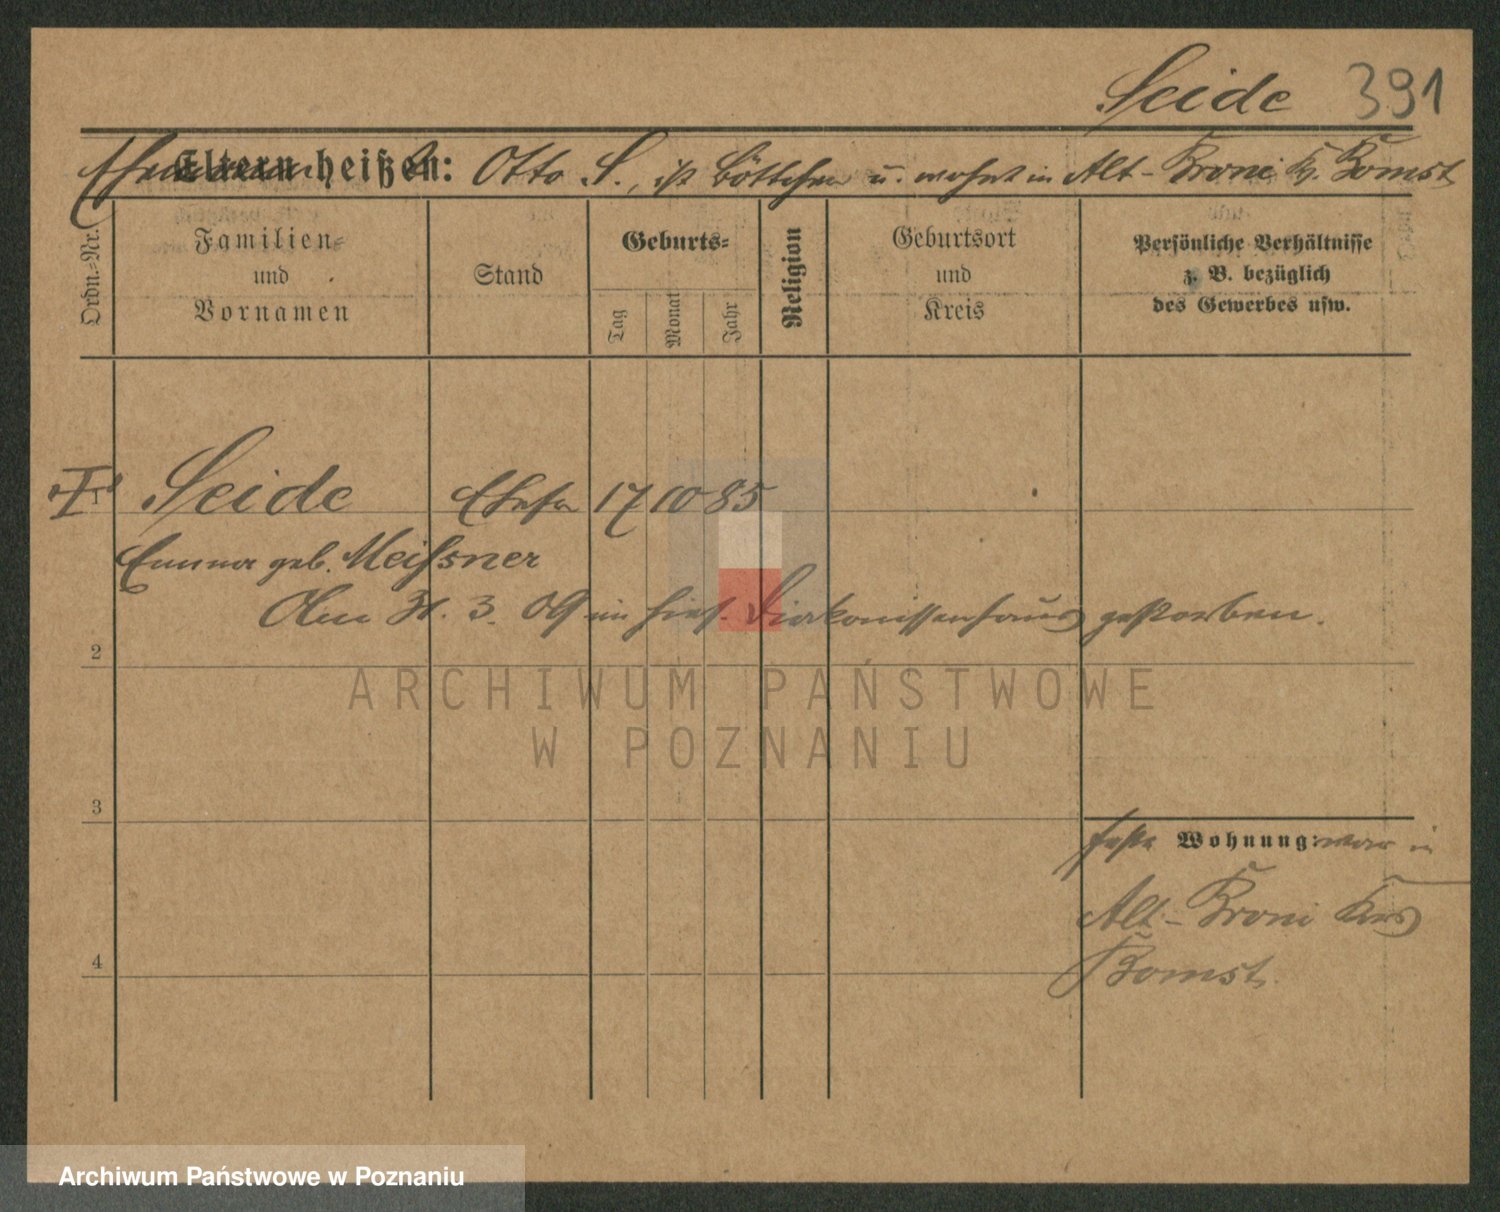 Seide 391
Ehemann Eltern heißen: Otto S., ist Böttcher u. wohnt in Alt-Kroni Kr. Bomst
Ordn.-Nr.
Familien-
und
Vornamen
Stand
Geburts-
Tag
Monat
Jahr
Religion
Geburtsort
und
Kreis
Persönliche Verhältnisse
z. B. bezüglich
des Gewerbes usw.
I 1 Seide Ehefr 17 10 85
Emma geb. Meissner
Am 31. 3. 09 im hies. Diakonissenhaus gestorben.
2
ARCHIWUM PAŃSTWOWE
W POZNANIU
3
feste Wohnung: war in
Alt-Kroni Krs
4
Bomst.
Archiwum Państwowe w Poznaniu